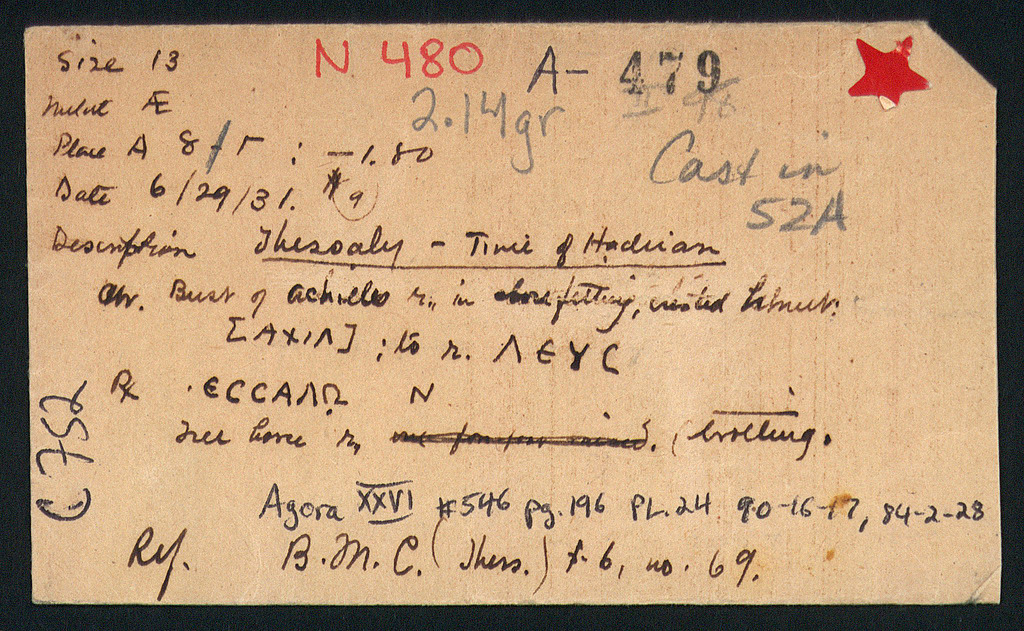 Size 13 N 480 A- 479
Metal Æ 2.14gr II 96
Place A 8/Γ : -1.80 Cast in
Date 6/29/31. #9 52A
Description Thessaly - Time of Hadrian
Obv. Bust of Achilles r., in close fitting, crested helmet:
[ΑΧΙΛ] ; to r. ΛΕΥC
Rx ·ЄCCΑΛΩ N
Free horse r., trotting.
C 752
Agora XXVI #546 pg. 196 PL. 24 90-16-17, 84-2-28
Ref. B.M.C. (Thess.) p. 6, no. 69.